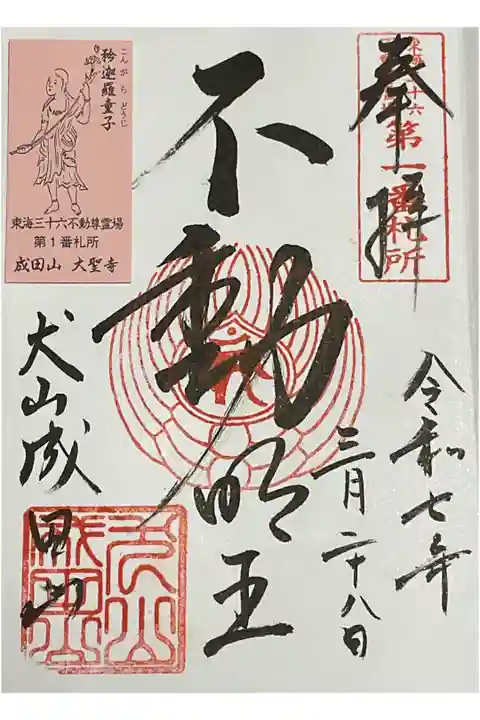 奉拝
東海三十六
第一番札所
令和七年
三月二十八日
不動明王
犬山成田山
矜迦羅童子
こんがらどうじ
東海三十六不動尊霊場
第1番札所
成田山 大聖寺